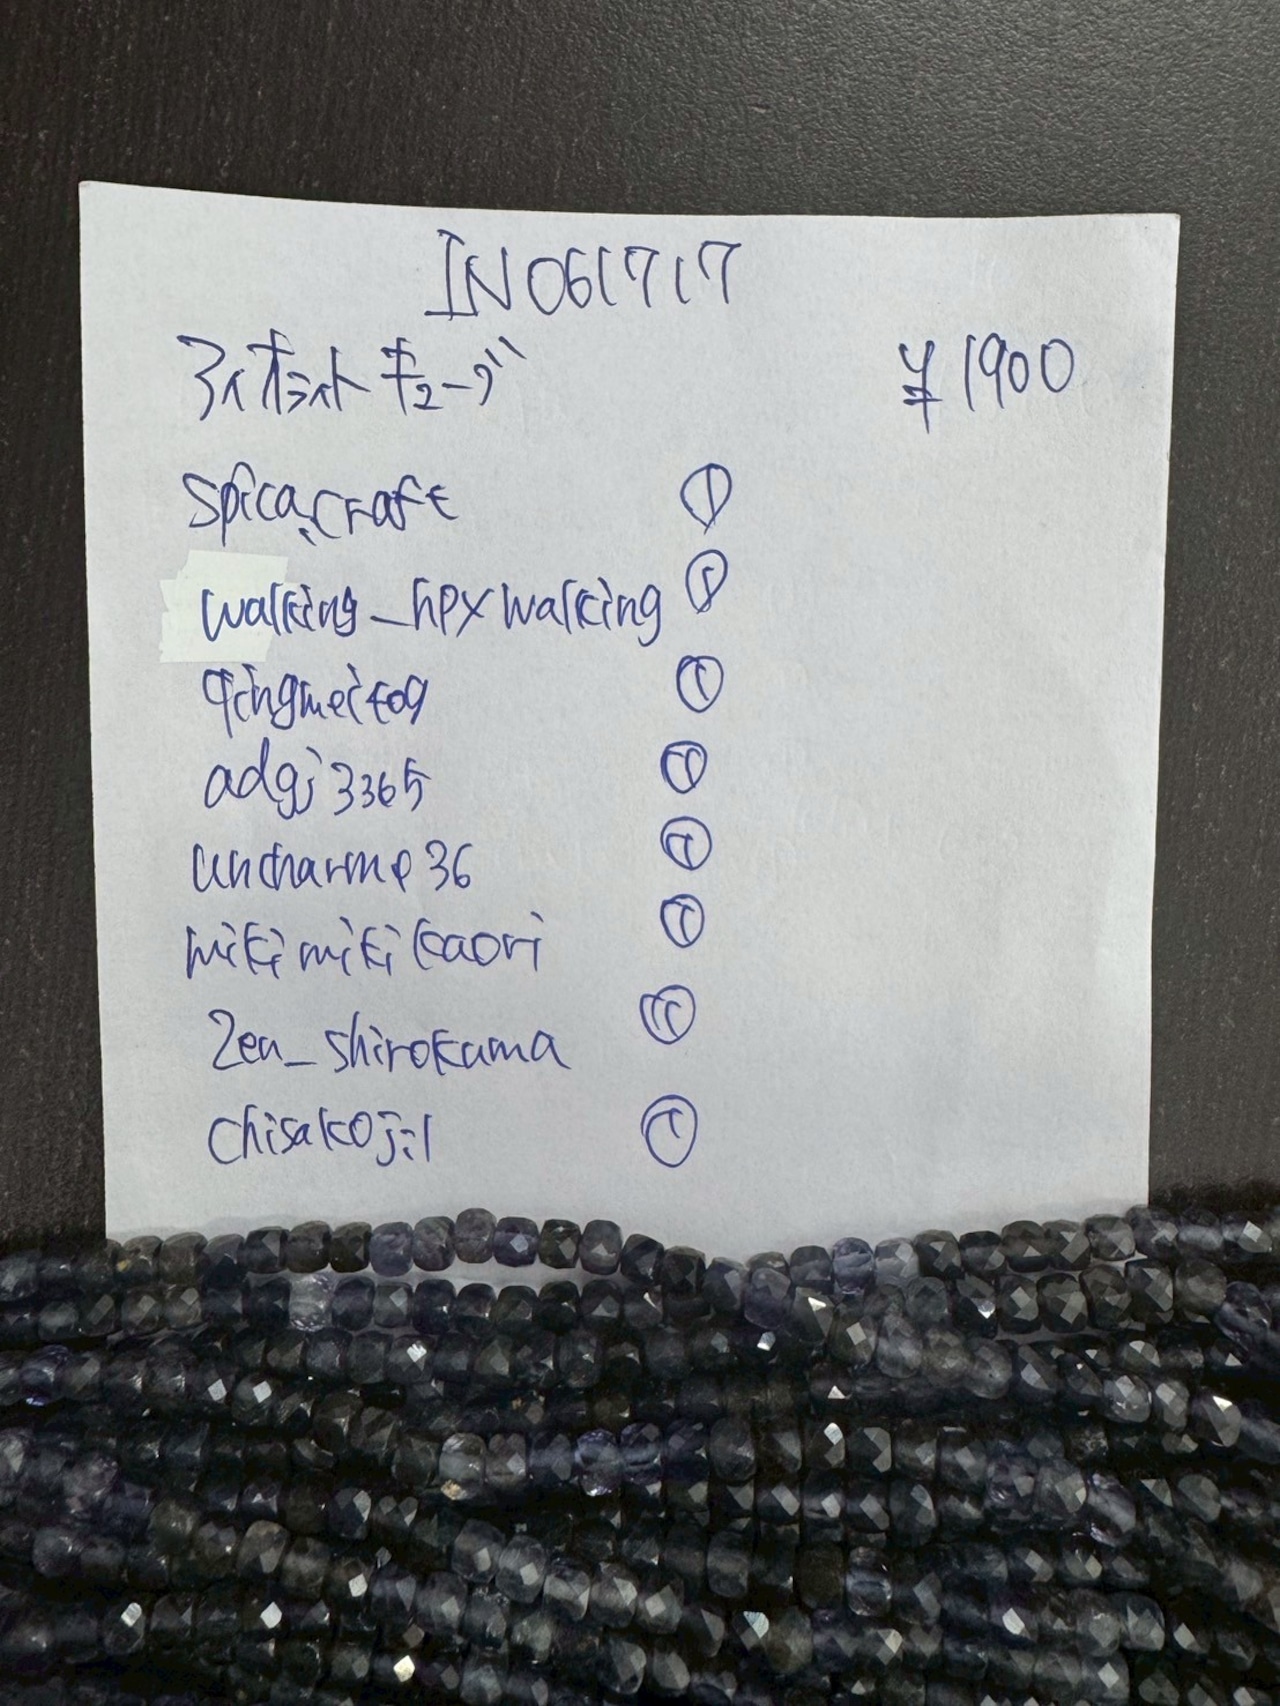 IN061717
アイオライトキューブ ¥1900
spica.craft ①
walking_hpxwalking ①
qingmeito9 ①
adgj3365 ①
uncharme36 ①
mikimikikaori ①
Zen_shirokuma
chisakoji1 ①